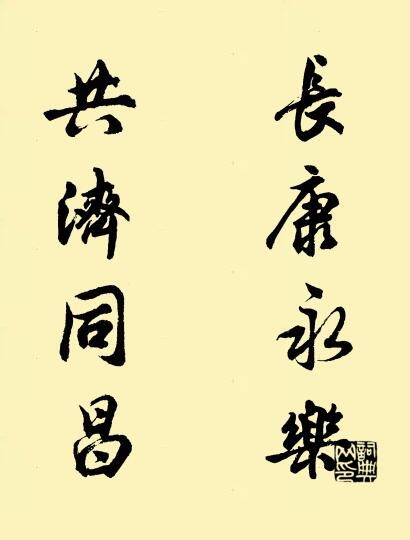 長康永樂
共濟同昌